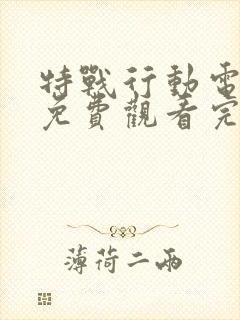 特戰行動電
免費觀看完
薄荷二兩